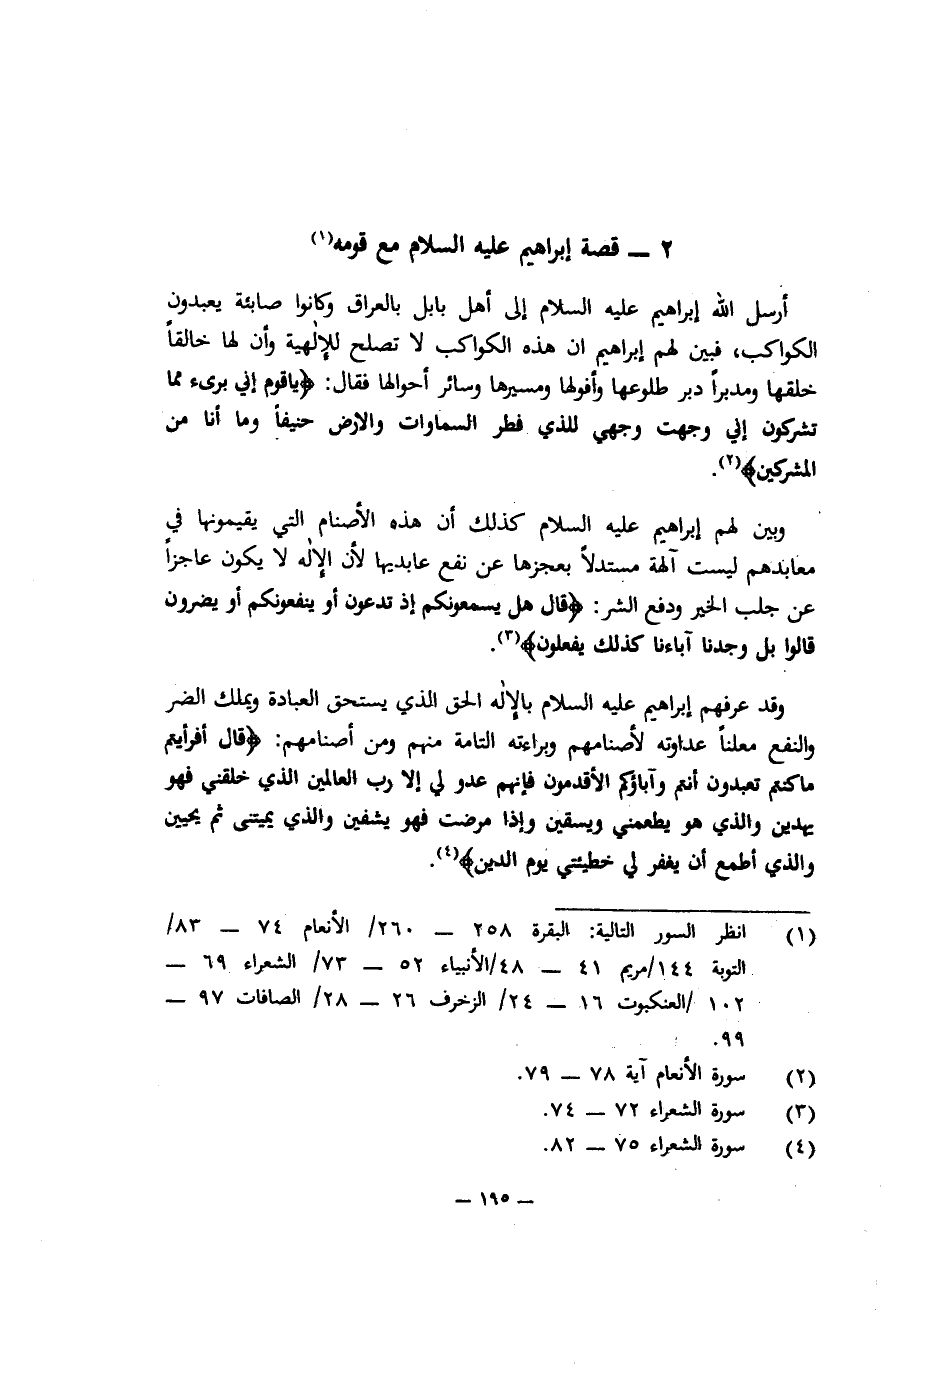 ٢ — قصة إبراهيم عليه السلام مع قومه(١)
أرسل الله إبراهيم عليه السلام إلى أهل بابل بالعراق وكانوا صابئة يعبدون
الكواكب، فبين لهم إبراهيم ان هذه الكواكب لا تصلح للإلٰهية وأن لها خالقاً
خلقها ومدبراً دبر طلوعها وأفولها ومسيرها وسائر أحوالها فقال: ﴿ياقوم إني برىء مما
تشركون إني وجهت وجهي للذي فطر السماوات والارض حنيفاً وما أنا من
المشركين﴾(٢).
وبين لهم إبراهيم عليه السلام كذلك أن هذه الأصنام التي يقيمونها في
معابدهم ليست آلهة مستدلاً بعجزها عن نفع عابديها لأن الإلٰه لا يكون عاجزاً
عن جلب الخير ودفع الشر: ﴿قال هل يسمعونكم إذ تدعون أو ينفعونكم أو يضرون
قالوا بل وجدنا آباءنا كذلك يفعلون﴾(٣).
وقد عرفهم إبراهيم عليه السلام بالإلٰه الحق الذي يستحق العبادة ويملك الضر
والنفع معلناً عداوته لأصنامهم وبراءته التامة منهم ومن أصنامهم: ﴿قال أفرأيتم
ماكنتم تعبدون أنتم وآباؤكم الأقدمون فإنهم عدو لي إلا رب العالمين الذي خلقني فهو
يهدين والذي هو يطعمني ويسقين وإذا مرضت فهو يشفين والذي يميتنى ثم يحيين
والذي أطمع أن يغفر لي خطيئتي يوم الدين﴾(٤).
(١) انظر السور التالية: البقرة ٢٥٨ — ٢٦٠/ الأنعام ٧٤ — ٨٣/
التوبة ١٤٤/مريم ٤١ — ٤٨/الأنبياء ٥٢ — ٧٣/ الشعراء ٦٩ —
١٠٢ /العنكبوت ١٦ — ٢٤/ الزخرف ٢٦ — ٢٨/ الصافات ٩٧ —
٩٩.
(٢) سورة الأنعام آية ٧٨ — ٧٩.
(٣) سورة الشعراء ٧٢ — ٧٤.
(٤) سورة الشعراء ٧٥ — ٨٢.
— ١٩٥ —